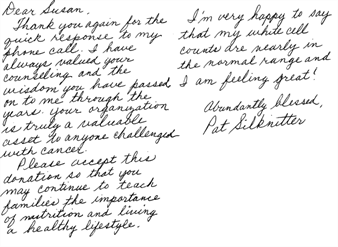 Dear Susan,
Thank you again for the
quick response to my
phone call. I have
always valued your
counseling and the
wisdom you have passed
on to me through the
years. Your organization
is truly a valuable
asset to anyone challenged
with cancer.
Please accept this
donation so that you
may continue to teach
families the importance
of nutrition and living
a healthy lifestyle.
I'm very happy to say
that my white cell
counts are nearly in
the normal range and
I am feeling great!
Abundantly blessed,
Pat Silknitter